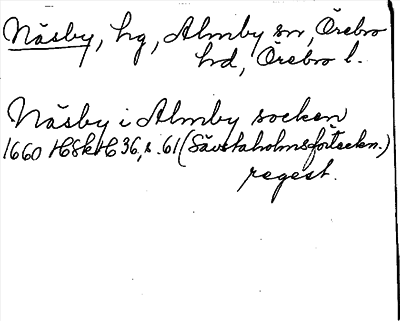 Näsby, hg, Almby sn, Örebro
hd, Örebro l.
Näsby i Almby socken
1660 HSkH 36, s. 61 (Sävstaholmsförteckn.)
regest.